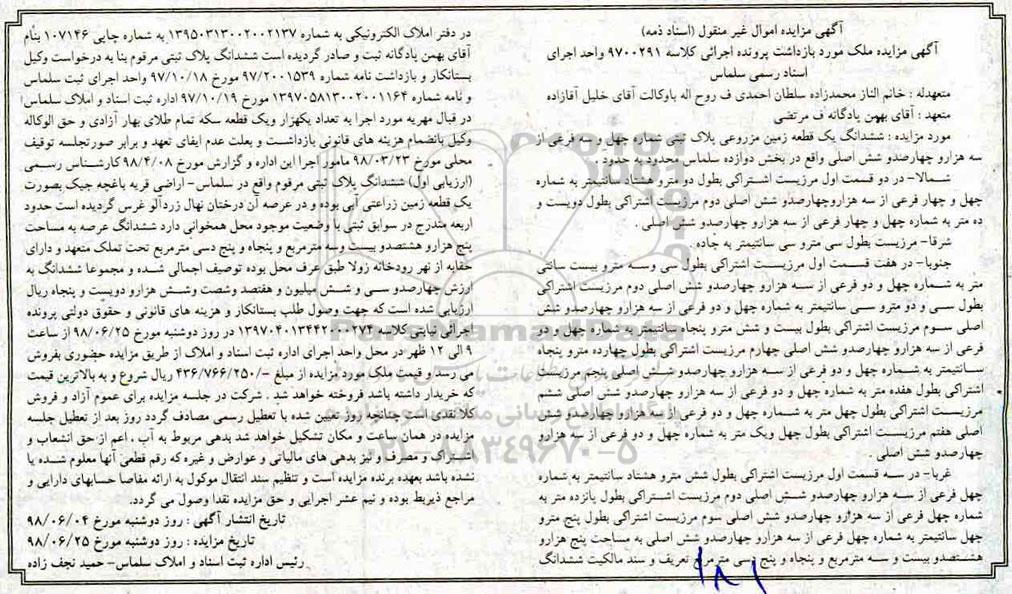 آگهی مزایده اموال غیر منقول (اسناد ذمه)
آگهی مزایده ملک مورد بازداشت پرونده اجرائی کلاسه ۹۷۰۰۲۹۱ واحد اجرای
اسناد رسمی سلماس
متعهدله : خانم الناز محمدزاده سلطان احمدی ف روح اله باوکالت آقای خلیل آقازاده
متعهد : آقای بهمن یادگانه ف مرتضی
مورد مزایده : ششدانگ یک قطعه زمین مزروعی پلاک ثبتی شماره چهل و سه فرعی از
سه هزارو چهارصدو شش اصلی واقع در بخش دوازده سلماس محدود به حدود .
شمالا- در دو قسمت اول مرزیست اشتراکی بطول دو مترو هشتاد سانتیمتر به شماره
چهل و چهار فرعی از سه هزاروچهارصدو شش اصلی دوم مرزیست اشتراکی بطول دویست و
ده متر به شماره چهل و چهار فرعی از سه هزارو چهارصدو شش اصلی .
شرقا- مرزیست بطول سی مترو سی سانتیمتر به جاده .
جنوبا- در هفت قسمت اول مرزیست اشتراکی بطول سی وسه مترو بیست سانتی
متر به شماره چهل و دو فرعی از سه هزارو چهارصدو شش اصلی دوم مرزیست اشتراکی
بطول سی و دو مترو سی سانتیمتر به شماره چهل و دو فرعی از سه هزارو چهارصدو شش
اصلی سوم مرزیست اشتراکی بطول بیست و شش مترو پنجاه سانتیمتر به شماره چهل و دو
فرعی از سه هزارو چهارصدو شش اصلی چهارم مرزیست اشتراکی بطول چهارده مترو پنجاه
سانتیمتر به شماره چهل و دو فرعی از سه هزارو چهارصدو شش اصلی پنجم مرزیست
اشتراکی بطول هفده متر به شماره چهل و دو فرعی از سه هزارو چهارصدو شش اصلی ششم
مرزیست اشتراکی بطول چهل متر به شماره چهل و دو فرعی از سه هزارو چهارصدو شش
اصلی هفتم مرزیست اشتراکی بطول چهل ویک متر به شماره چهل و دو فرعی از سه هزارو
چهارصدو شش اصلی .
غربا- در سه قسمت اول مرزیست اشتراکی بطول شش مترو هشتاد سانتیمتر به شماره
چهل فرعی از سه هزارو چهارصدو شش اصلی دوم مرزیست اشتراکی بطول پانزده متر به
شماره چهل فرعی از سه هزارو چهارصدو شش اصلی سوم مرزیست اشتراکی بطول پنج مترو
چهل سانتیمتر به شماره چهل فرعی از سه هزارو چهارصدو شش اصلی به مساحت پنج هزارو
هشتصدو بیست و سه مترمربع و پنجاه و پنج دسی مترمربع تعریف و سند مالکیت ششدانگ
در دفتر املاک الکترونیکی به شماره ۱۳۹۵۰۳۱۳۰۰۲۰۰۲۱۳۷ به شماره چاپی ۱۰۷۱۴۶ بنام
آقای بهمن یادگانه ثبت و صادر گردیده است ششدانگ پلاک ثبتی مرقوم بنا به درخواست وکیل
بستانکار و بازداشت نامه شماره ۹۷/۲۰۰۱۵۳۹ مورخ ۹۷/۱۰/۱۸ واحد اجرای ثبت سلماس
و نامه شماره ۱۳۹۷۰۵۸۱۳۰۰۲۰۰۱۱۶۴ مورخ ۹۷/۱۰/۱۹ اداره ثبت اسناد و املاک سلماس
در قبال مهریه مورد اجرا به تعداد یکهزار ویک قطعه سکه تمام طلای بهار آزادی و حق الوکاله
وکیل بانضمام هزینه های قانونی بازداشت و بعلت عدم ایفای تعهد و برابر صورتجلسه توقیف
محلی مورخ ۹۸/۰۳/۲۳ مامور اجرا این اداره و گزارش مورخ ۹۸/۴/۰۸ کارشناس رسمی
(ارزیابی اول) ششدانگ پلاک ثبتی مرقوم واقع در سلماس- اراضی قریه باغچه جیک بصورت
یک قطعه زمین زراعتی آبی بوده و در عرصه آن درختان نهال زردآلو غرس گردیده است حدود
اربعه مندرج در سوابق ثبتی با وضعیت موجود محل همخوانی دارد ششدانگ عرصه به مساحت
پنج هزارو هشتصدو بیست وسه مترمربع و پنجاه و پنج دسی مترمربع تحت تملک متعهد و دارای
حقابه از نهر رودخانه زولا طبق عرف محل بوده توصیف اجمالی شده و مجموعا ششدانگ به
ارزش چهارصدو سی و شش میلیون و هفتصد وشصت وشش هزارو دویست و پنجاه ریال
ارزیابی شده است که جهت وصول طلب بستانکار و هزینه های قانونی و حقوق دولتی پرونده
اجرائی نیابتی کلاسه ۱۳۹۷۰۴۰۱۳۴۴۲۰۰۰۲۷۲ در روز دوشنبه مورخ ۹۸/۰۶/۲۵ از ساعت
۹ الی ۱۲ ظهر در محل واحد اجرای اداره ثبت اسناد و املاک از طریق مزایده حضوری بفروش
می رسد و قیمت ملک مورد مزایده از مبلغ ۴۳۶/۷۶۶/۲۵۰/- ریال شروع و به بالاترین قیمت
که خریدار داشته باشد فروخته خواهد شد . شرکت در جلسه مزایده برای عموم آزاد و فروش
کلا نقدی است چنانچه روز تعیین شده با تعطیل رسمی مصادف گردد روز بعد از تعطیل جلسه
مزایده در همان ساعت و مکان تشکیل خواهد شد بدهی مربوط به آب ، اعم از حق انشعاب و
اشتراک و مصرف و نیز بدهی های مالیاتی و عوارض و غیره که رقم قطعی آنها معلوم شده یا
نشده باشد بعهده برنده مزایده است و تنظیم سند انتقال موکول به ارائه مفاصا حسابهای دارایی و
مراجع ذیربط بوده و نیم عشر اجرایی و حق مزایده نقدا وصول می گردد.
تاریخ انتشار آگهی : روز دوشنبه مورخ ۹۸/۰۶/۰۴
تاریخ مزایده : روز دوشنبه مورخ ۹۸/۰۶/۲۵
رئیس اداره ثبت اسناد و املاک سلماس- حمید نجف زاده
ParsNamadData
۰۲۱-۸۸۳۴۹۶۷۰-۵